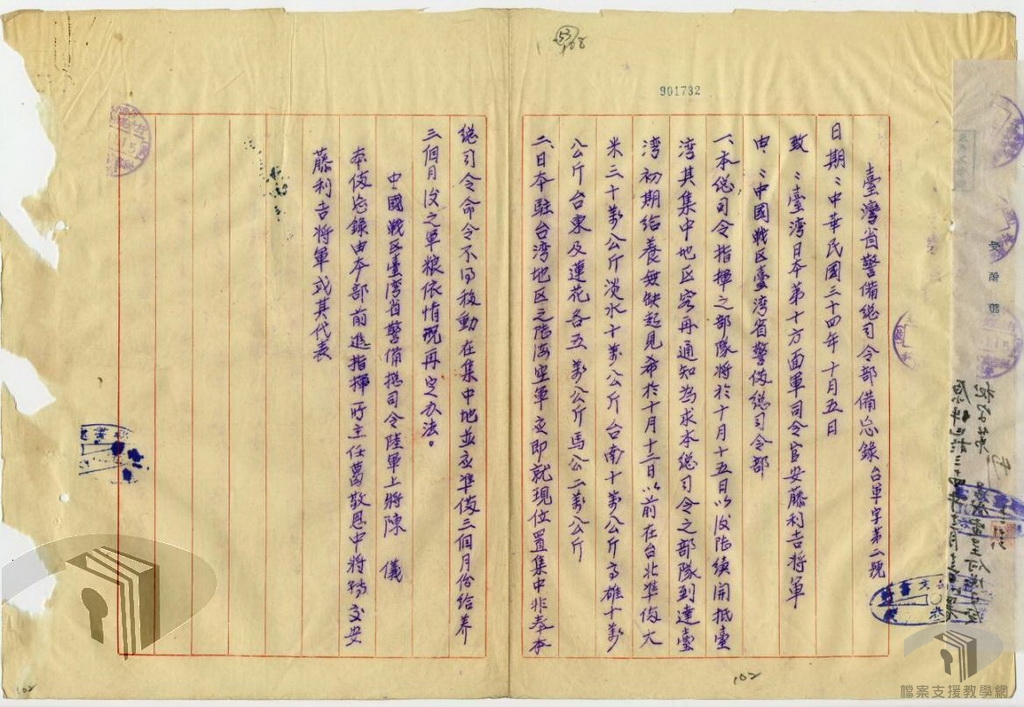 901732
臺灣省警備總司令部備忘錄台軍字第二號
日期：中華民國三十四年十月五日
致：臺湾日本第十方面軍司令官安藤利吉將軍
由：中國戰区臺湾省警俻總司令部
一、本總司令指揮之部隊将於十月十五日以後陸續開抵臺
湾其集中地区容再通知為求本總司令之部隊到達臺
湾初期给養無缺起見希於十月十二日以前在台北準俻大
米三十萬公斤淡水十萬公斤台南十萬公斤高雄十萬
公斤台東及蓮花各五萬公斤馬公二萬公斤
二、日本駐台湾地区之陸海空軍立即就現位置集中非奉本
總司令命令不得移動在集中地並应準俻三個月份给养
三個月後之軍粮依情况再定办法。
中國戰区臺湾省警備總司令陸軍上將陳 儀
本俻忘錄由本部前進指揮所主任葛敬恩中將轉交安
藤利吉將軍或其代表
102
102
檔案支援教學網